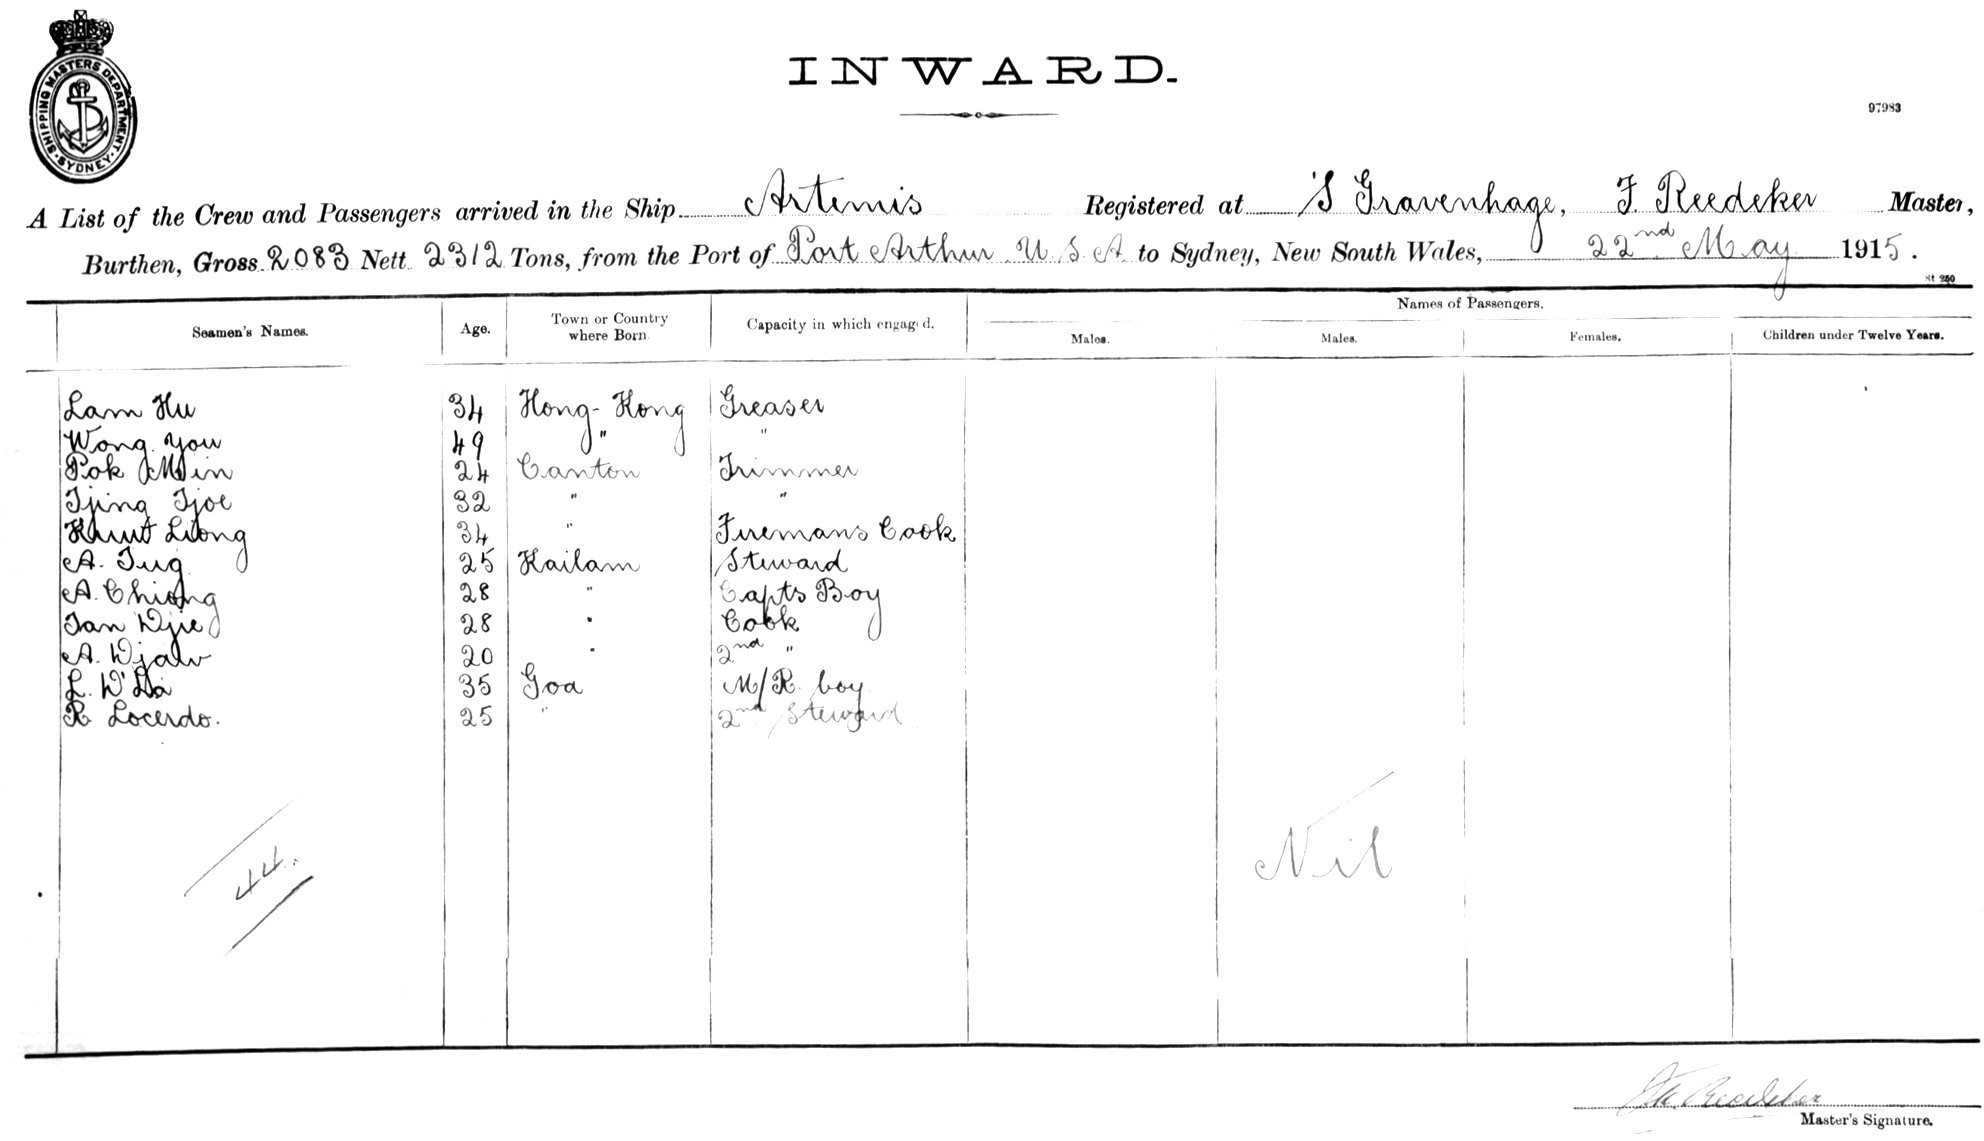 SHIPPING MASTERS DEPARTMENT
SYDNEY
INWARD.
97983
A List of the Crew and Passengers arrived in the Ship Artemis Registered at 'S Gravenhage, F. Reedeker Master,
Burthen, Gross 2083 Nett 2312 Tons, from the Port of Port Arthur U.S.A. to Sydney, New South Wales, 22nd May 1915.
Names of Passengers.
Seamen's Names. Age. Town or Country where Born. Capacity in which engaged. Males. Males. Females. Children under Twelve Years.
Lam Hu 34 Hong-Kong Greaser
Wong You 49 " "
Pok Min 24 Canton Trimmer
Tjing Tjoe 32 " "
Liong 34 " Firemans Cook
A. Tug 25 Hailam Steward
A. Chiong 28 " Capts Boy
Tan Djie 28 " Cook
A. Djalv 20 " 2nd "
L. 35 Goa M/R. boy
R Locerdo. 25 " 2nd Steward
Nil
44.
Reedeker
Master's Signature.